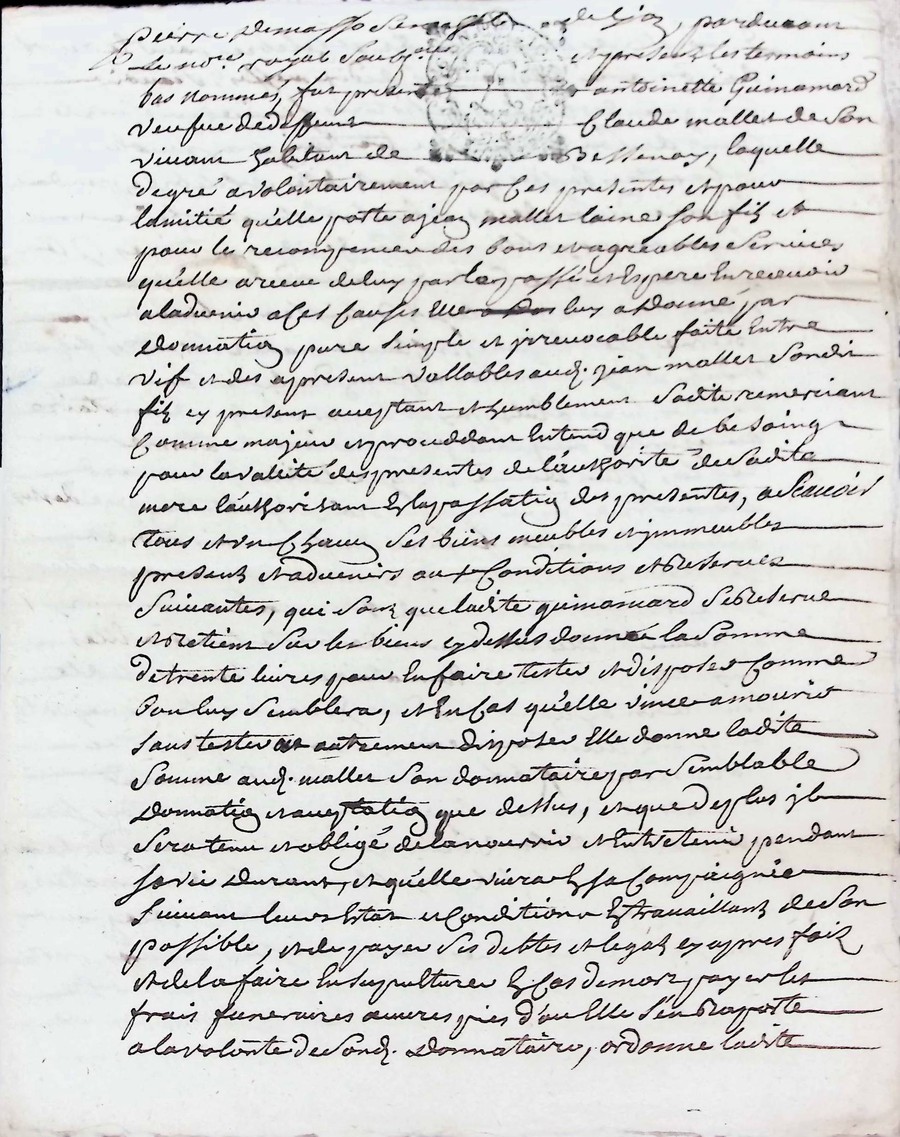 pardevant
Le no.re royal soubz.né et present les temoins
bas nommez, fut presente antoinette Guinamard
veufve de deffunt Claude mallet de son
vivant habitant de Bessenay, laquelle
de gré a volontairement par Ces presentes et pour
lamitié qu'elle porte a jean mallet laine son filz et
pour le recompencer des bons et agreables services
qu'elle a receu de luy par le passé et Espere En recevoir
a ladvenir a Ces Causes Elle luy a Donné par
Donnation pure simple et jrrevocable faite Entre
vif et des apresent vallables aud. jean mallet sondit
filz cy present acceptant et humblement sadite remerciant
Comme majeur et proceddant Entend que de besoing
pour la validité des presentes de l'authorité de sadite
mere l'authorisant En la passation des presentes, a Scavoir
Tous et un Chacun ses biens meubles et jmmeubles
presentz et advenirs aux Conditions et Reserves
Suivantes, qui sont que ladite guinamard se Reserve
et Retient sur les biens cy dessus donnés la somme
de trente livres pour En faire tester et disposer Comme
bon luy semblera, et En Cas qu'elle vince a mourir
sans tester et autrement disposer Elle donne ladite
somme aud. mallet son donnataire par semblable
Donnation et acceptation que dessus, et que de plus jl
sera tenu et obligé de la nourrir et Entretenir pendant
sa vie durant, et qu'elle vivra En sa Compaignie
suivant leurs Estat et Condition En travaillant de son
possible, et de payer ses debtes et legatz cy apres faitz
et de la faire Ensepulturer En Cas de mort payer les
frais funeraires œuvres pies d'ou Elle s'en Raporte
a la volonté de sond. Donnataire, ordonne ladite